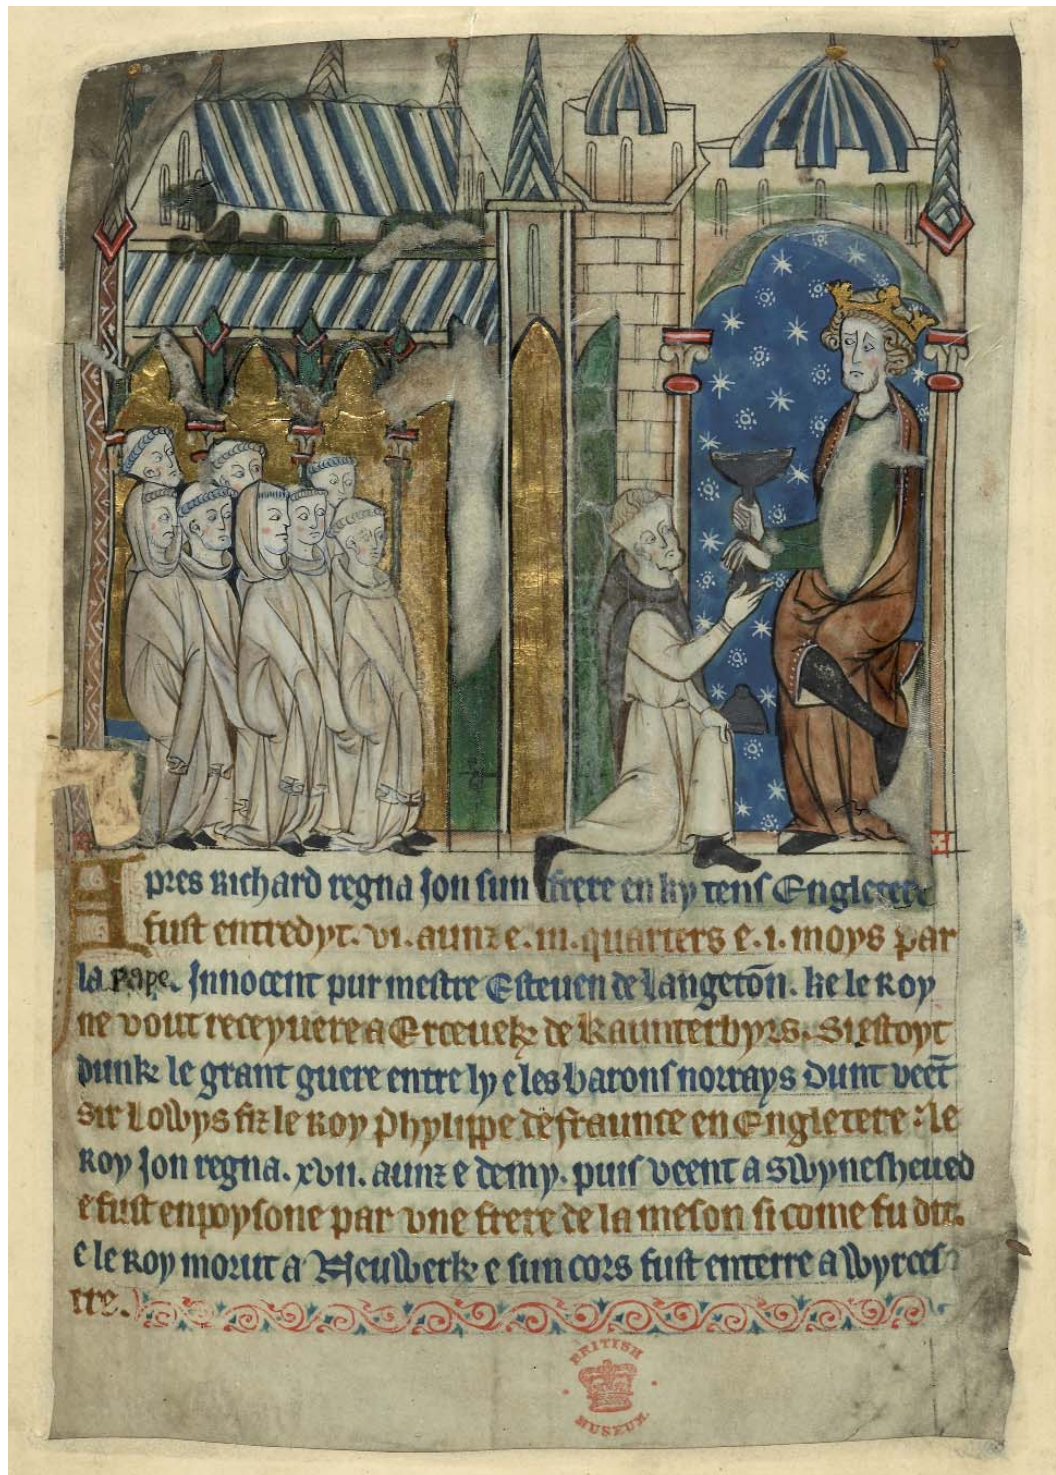 Apres Richard regna Jon sun frere en ky tens Engletere
fust entredyt. vi. aunz e. iii. quarters e. i. moys par
la pape. Innocent pur mestre Esteuen de Langetōn. ke le Roy
ne vout receyuere a Erceuekꝭ de Kaunterbyrs. Si estoyt
dunk le grant guere entre ly e les barons norrays dunt veēt
sir Lowys fiz le Roy Phylippe de fraunce en Engletere : le
Roy Jon regna. xvii. aunz e demy. puis veent a Swynesheued
e fust enpoysone par vne frere de la meson si come fu dit.
e le Roy morut a Neuwerk e sun cors fust enterre a Wyrces
tre.
BRITISH
MUSEUM